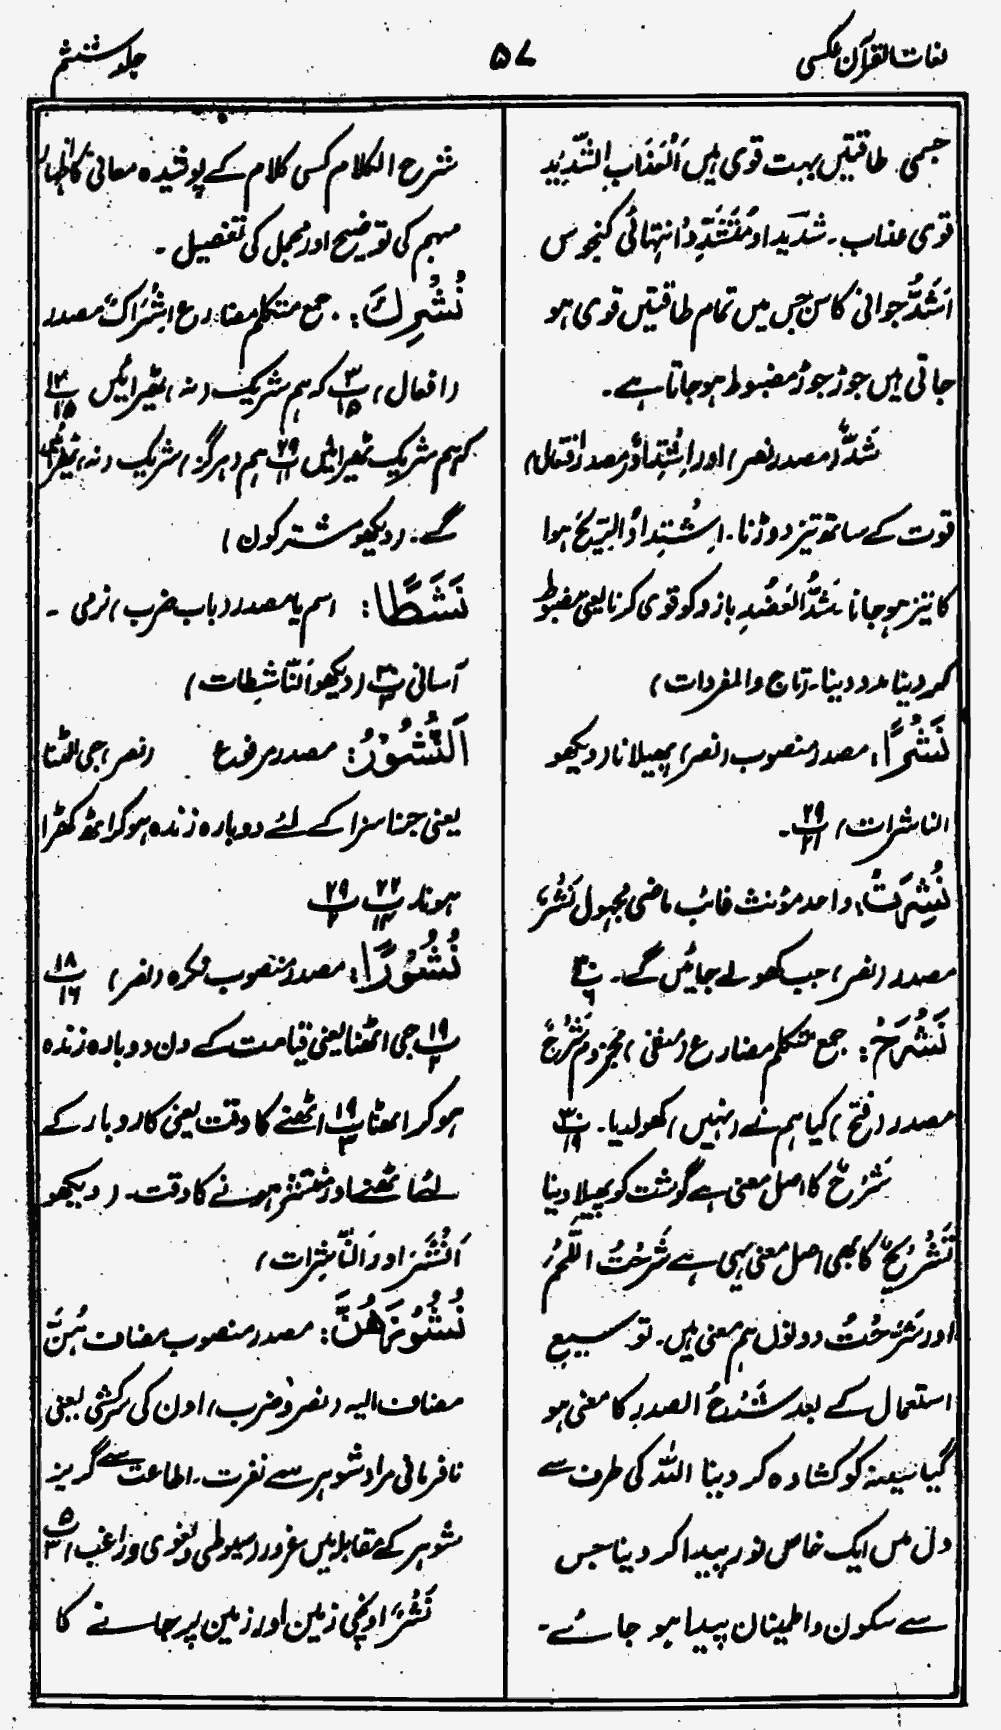 لغات القرآن عکسی
۵۷
جلد ششم
جسمی طاقتیں بہت قوی ہیں اَلْعَذَابِ الشَّدِیْدِ
قوی عذاب۔ شدید اور مُتَشَدِّدٌ انتہائی کنجوس
اَشُدَّ جوانی کا سن جس میں تمام طاقتیں قوی ہو
جاتی ہیں جوڑ جوڑ مضبوط ہوجاتا ہے۔
شَدٌّ (مصدر نصر) اور اِشْتِدَادٌ (مصدر افتعال)
قوت کے ساتھ تیز دوڑنا۔ اِشْتِدَادُ الرِّیْحِ ہوا
کا تیز ہوجانا شَدُّ الْعَضُدِ بازو کو قوی کرنا یعنی مضبوط
کر دینا مدد دینا۔ (تاج والمفردات)
نَشْرًا: مصدر منصوب (نصر) پھیلانا (دیکھو
الناشرات) ۲۹ پ ۲۱۔
نُشِرَتْ: واحد مؤنث غائب ماضی مجہول نَشْرٌ
مصدر (نصر) جب کھولے جائیں گے۔ پ ۳۰ ۶
نَشْرَحْ: جمع متکلم مضارع (منفی) مجزوم شَرْحٌ
مصدر (فتح) کیا ہم نے (نہیں) کھولدیا۔ پ ۳۰ ۱۹
شَرْحٌ کا اصل معنی ہے گوشت کو پھیلا دینا
تَشْرِیْحٌ کا بھی اصل معنی یہی ہے شَرَحْتُ اللَّحْمَ
اور شَرَّحْتُ دونوں ہم معنی ہیں۔ توسیع
استعمال کے بعد شَرْحُ الصدر کا معنی ہو
گیا سینہ کو کشادہ کر دینا اللہ کی طرف سے
دل میں ایک خاص نور پیدا کر دینا جس
سے سکون و اطمینان پیدا ہو جائے۔
شرح الکلام کسی کلام کے پوشیدہ معانی کا اظہار
مبہم کی توضیح اور مجمل کی تفصیل۔
نُشْرِكَ: جمع متکلم مضارع اِشْرَاکٌ مصدر
(افعال) پ ۳ ۱۵ کہ ہم شریک (نہ) ٹھیرائیں پ ۱۳ ۱۵
کہ ہم شریک ٹھیرائیں پ ۲۹ ۱۱ ہم (ہرگز) شریک (نہ) ٹھیرائیں
گے۔ (دیکھو مشرکون)
نَشْطًا: اسم یا مصدر (باب ضرب) نرمی۔
آسانی پ ۳۰ ۳ (دیکھو اَلنَّاشِطات)
اَلنُّشُوْرُ: مصدر مرفوع (نصر) جی اٹھنا
یعنی جزا سزا کے لئے دوبارہ زندہ ہوکر اٹھ کھڑا
ہونا۔ پ ۲۲ ۱۴ پ ۲۹ ۲
نُشُوْرًا: مصدر منصوب نکرہ (نصر) پ ۱۸ ۱۶
پ ۱۹ ۲ جی اٹھنا یعنی قیامت کے دن دوبارہ زندہ
ہوکر اٹھنا پ ۱۹ ۳ اٹھنے کا وقت یعنی کاروبار کے
لئے اٹھنے اور منتشر ہونے کا وقت۔ (دیکھو
اَنْشَرَ اور اَلنَّاشِرات)
نُشُوْزَهُنَّ: مصدر منصوب مضاف هُنَّ
مضاف الیہ (نصر و ضرب) اون کی سرکشی یعنی
نافرمانی مراد شوہر سے نفرت۔ اطاعت سے گریز
شوہر کے مقابلہ میں غرور (سیوطی و بغوی و راغب) پ ۵ ۳
نَشْزٌ اونچی زمین اور زمین پر جانے کا